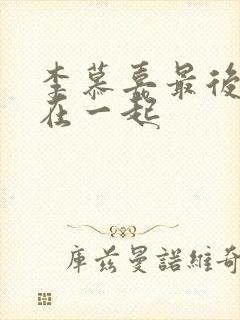 李慕嘉最後
在一起
庫茲曼諾維奇